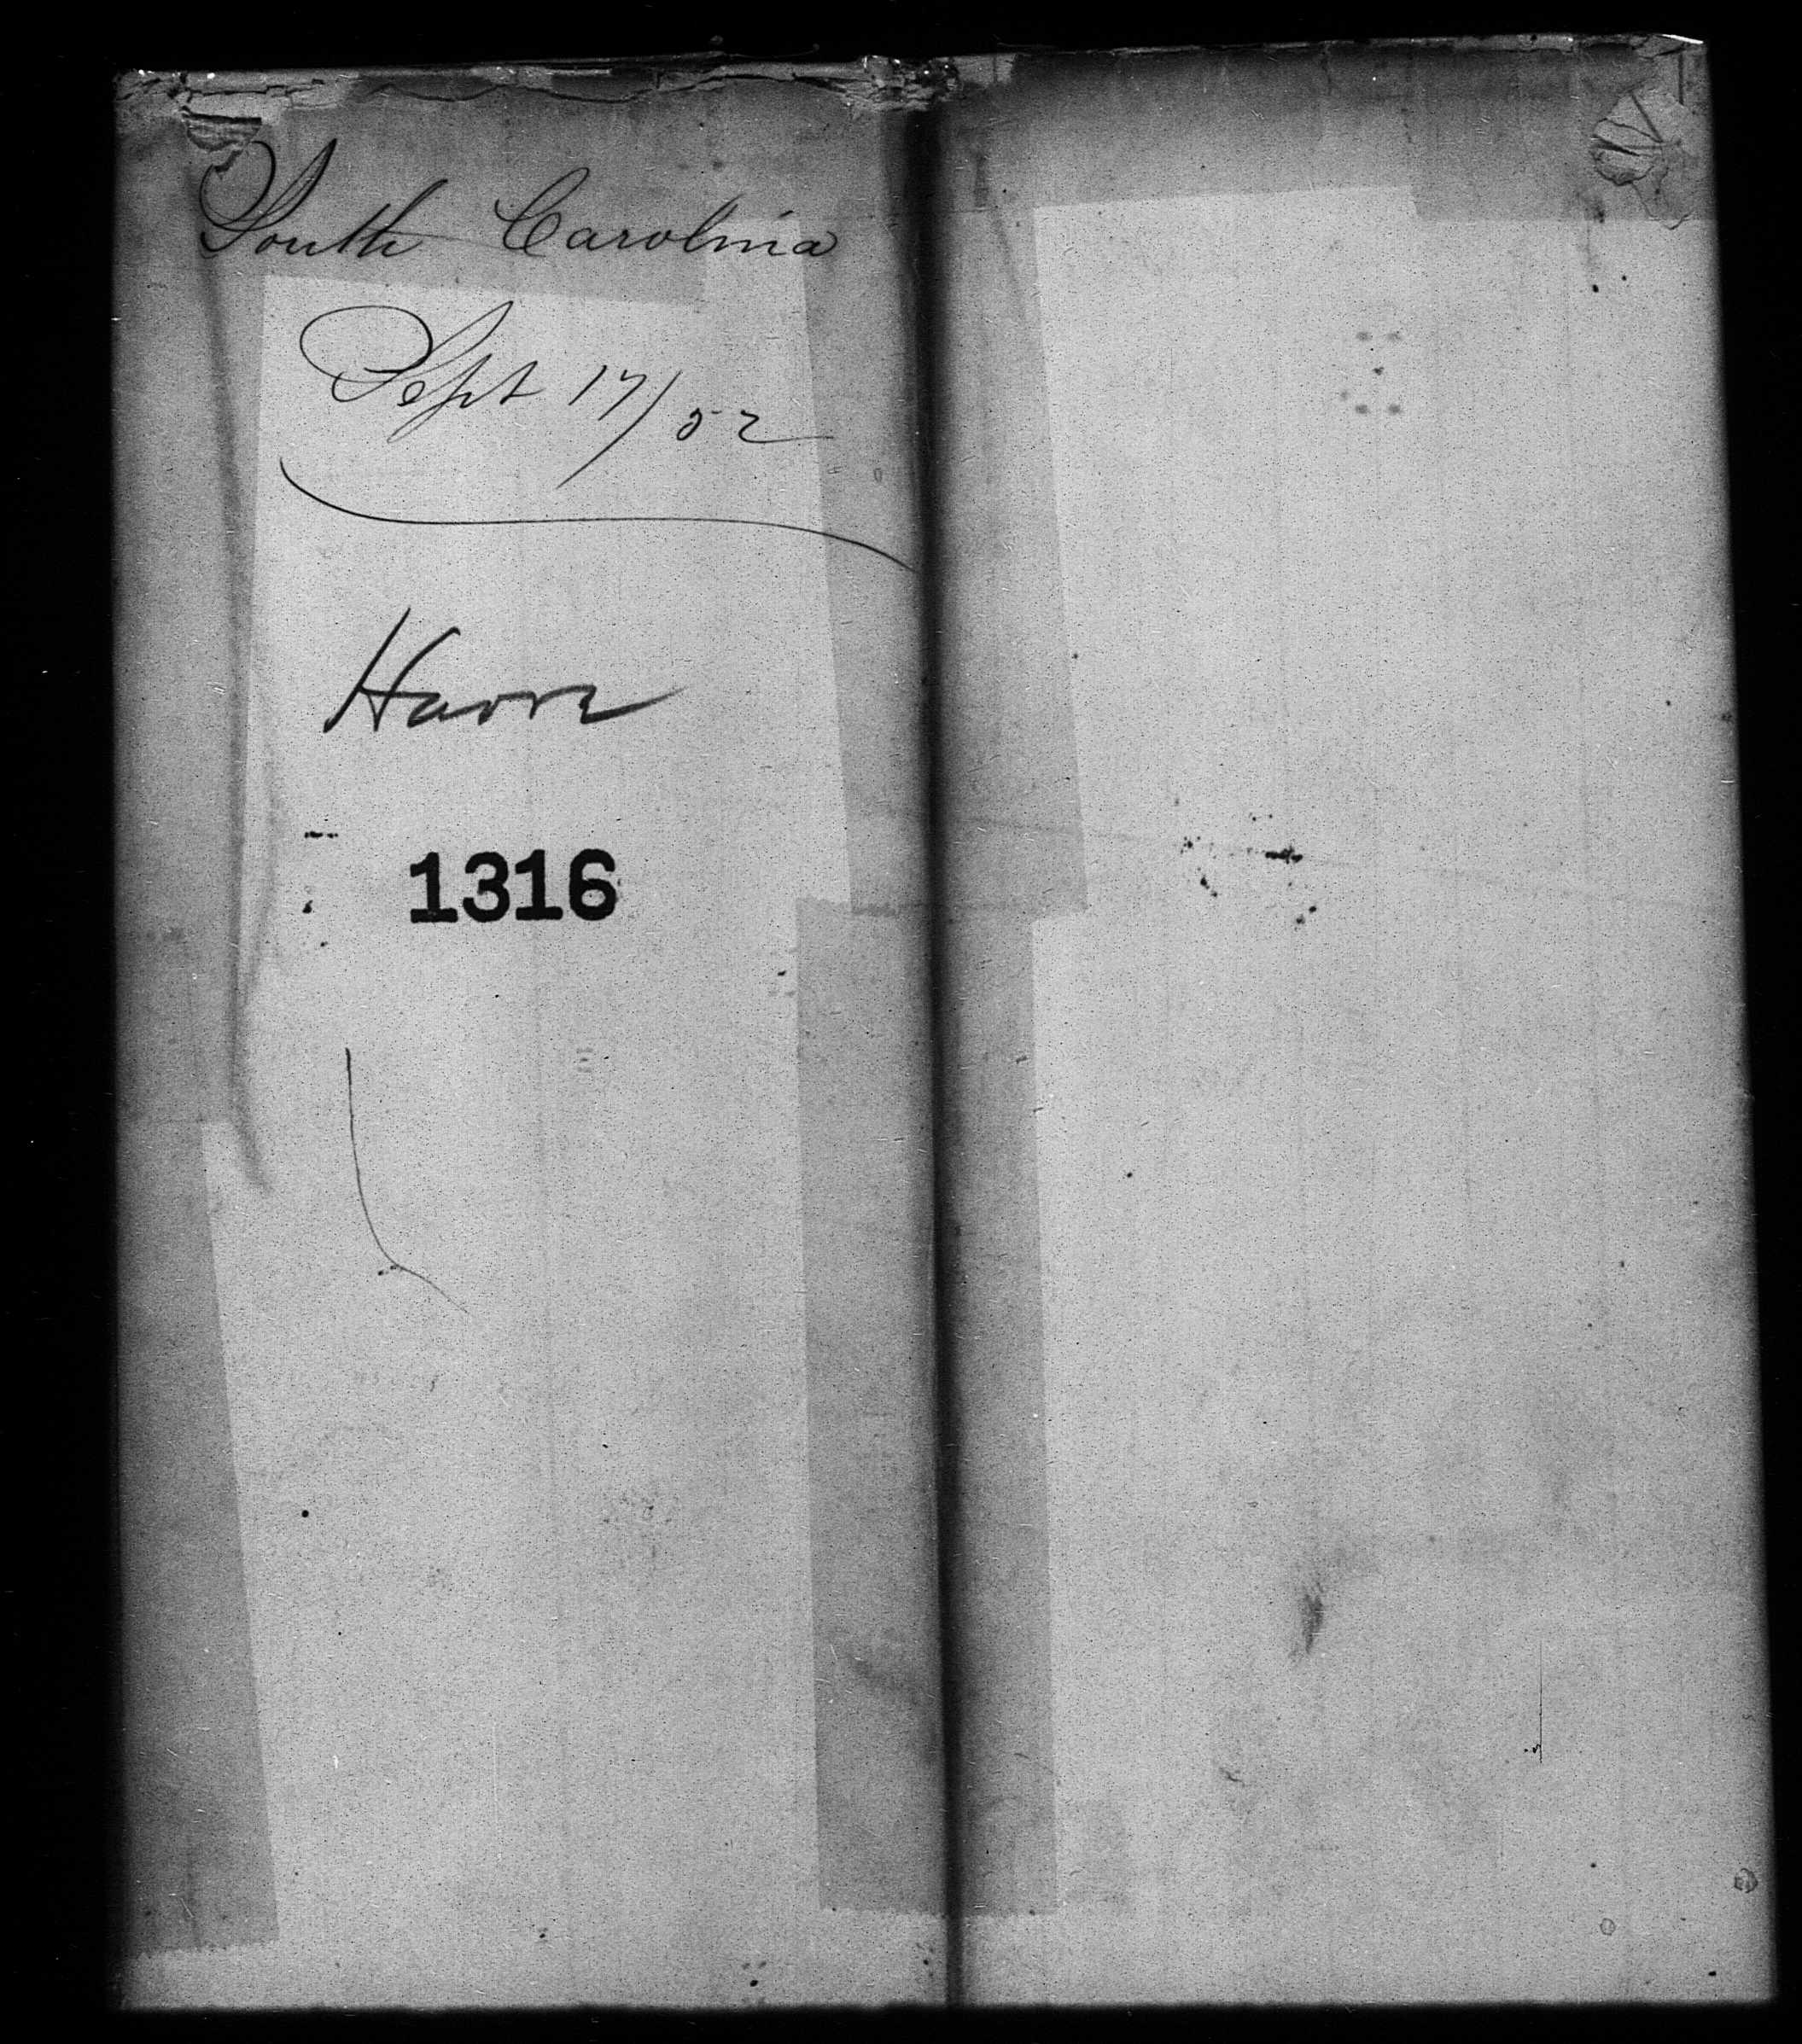 South Carolina
Sept 17/52
Havre
1316